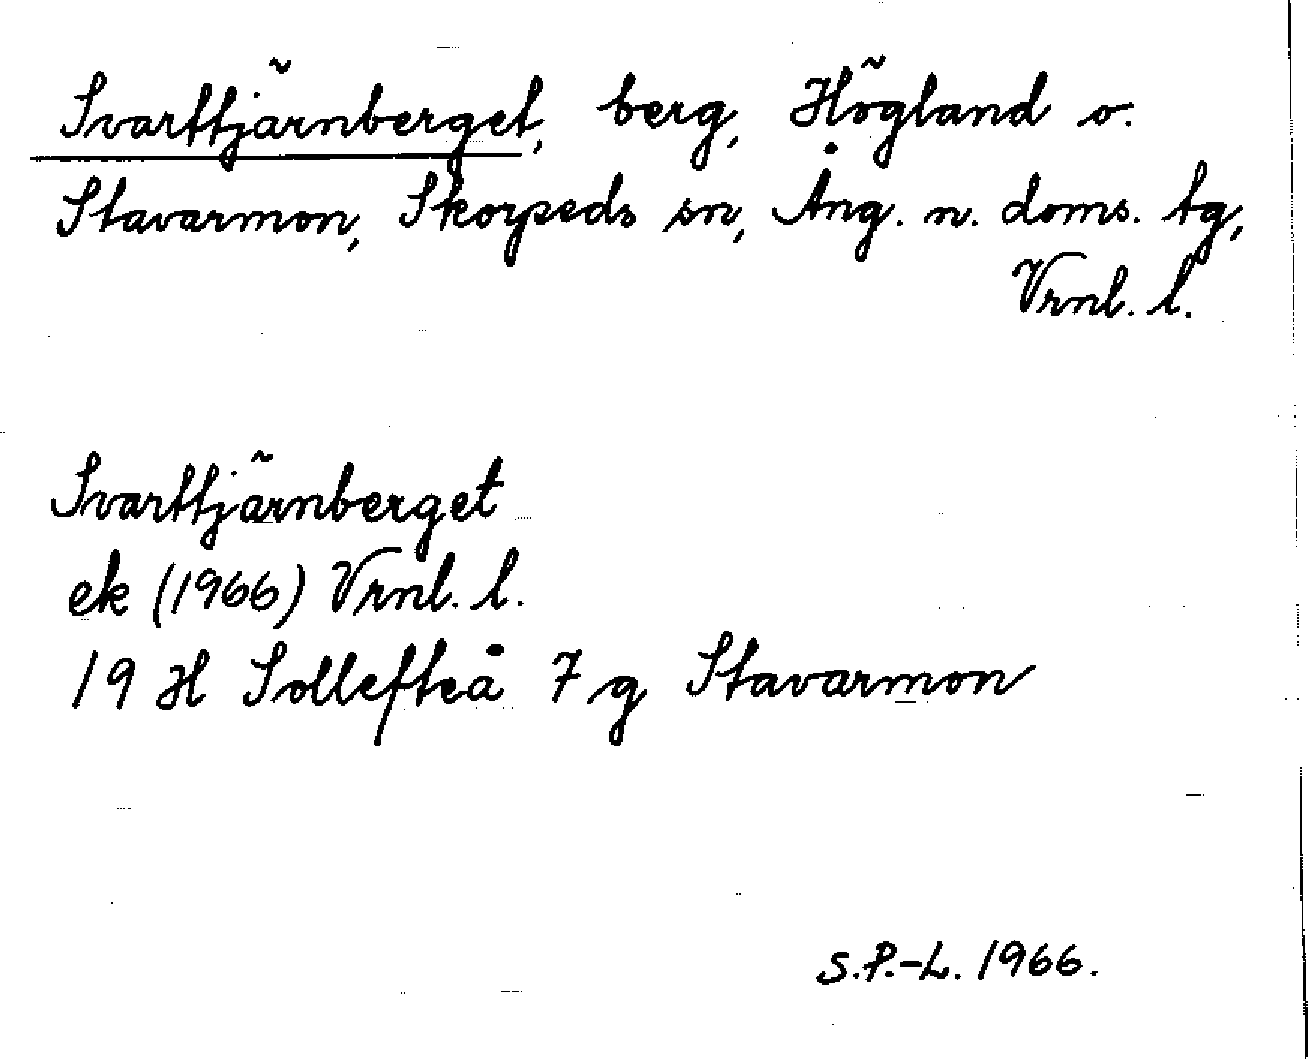 Svarttjärnberget, berg, Högland o.
Stavarmon, Skorpeds sn, Ång. n. doms. tg,
Vrnl. l.
Svarttjärnberget
ek (1966) Vrnl. l.
19 H Sollefteå 7 g Stavarmon
S.P.-L. 1966.